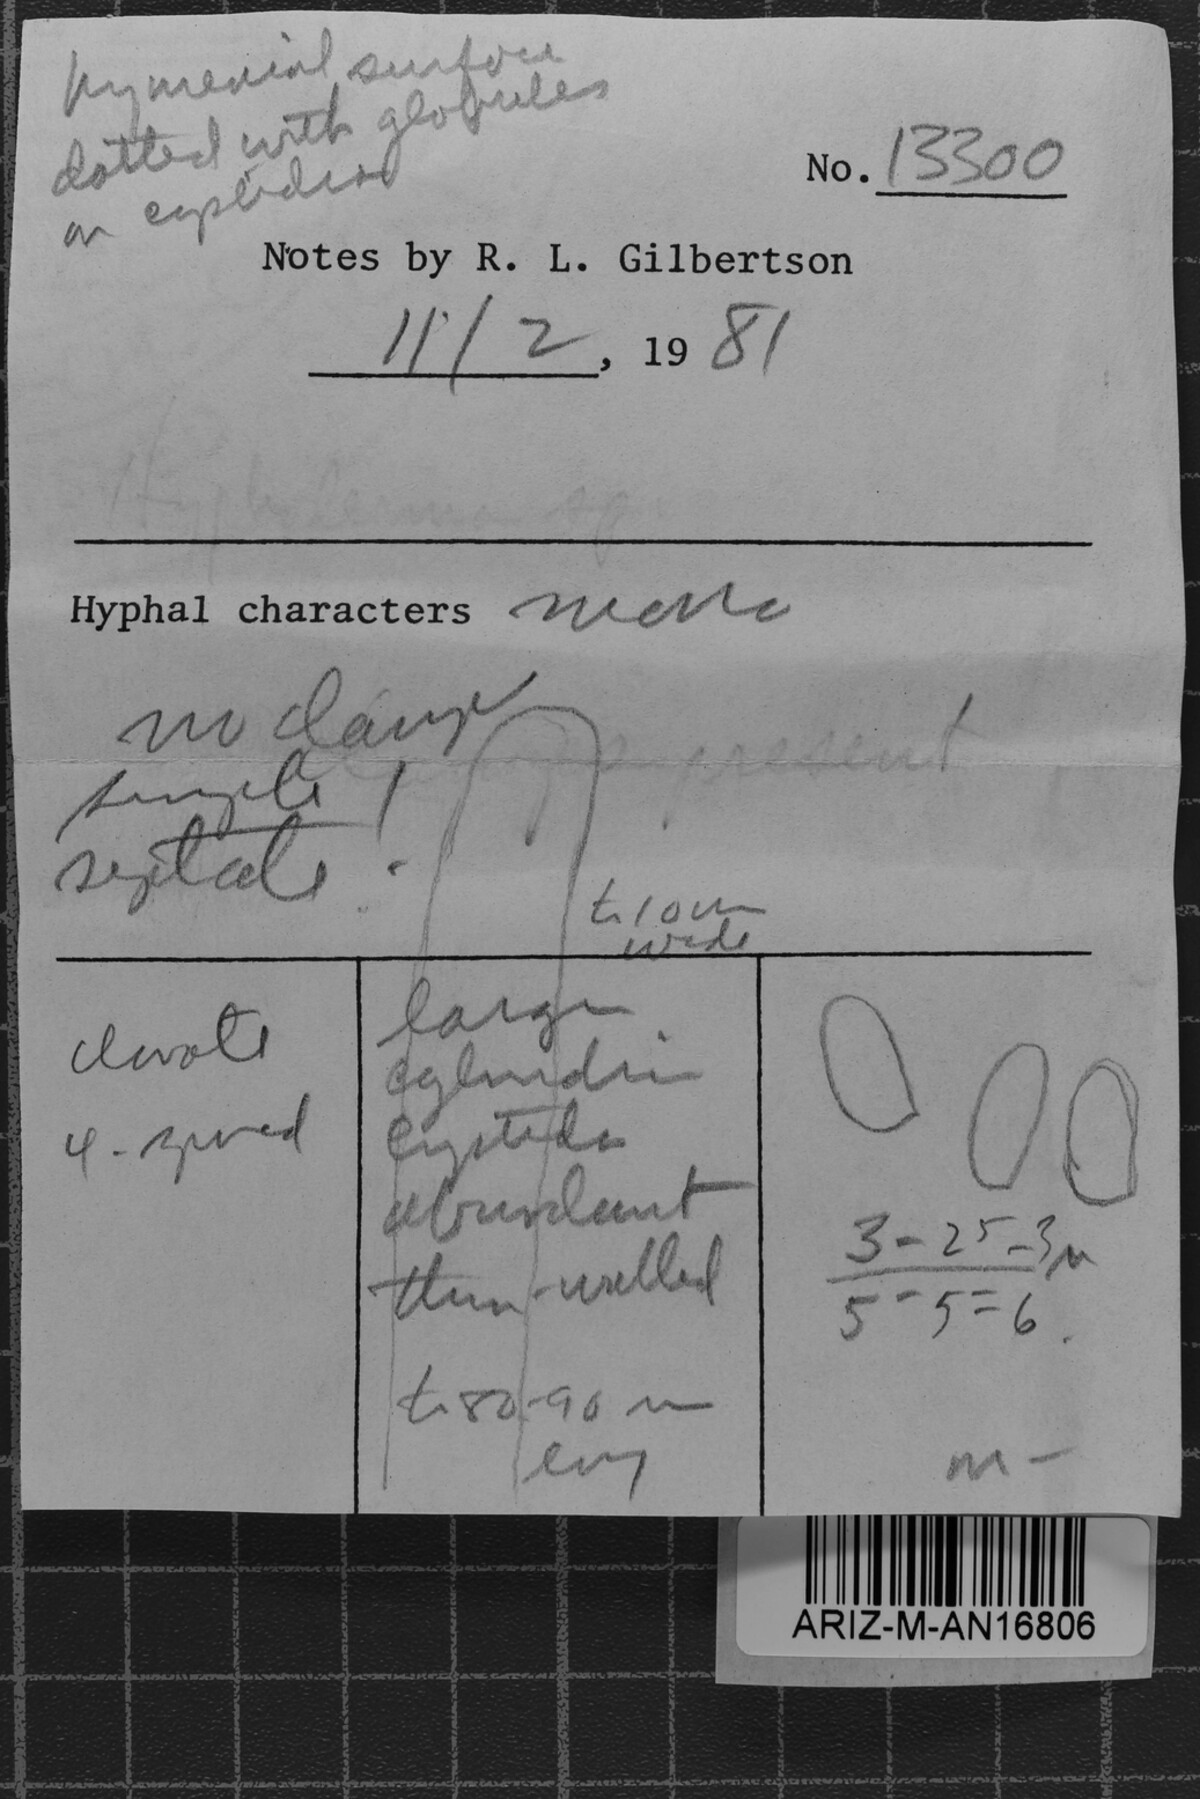 hymenial surface
dotted with globules
on cystidia
No. 13300
Notes by R. L. Gilbertson
11/2, 1981
Hyphoderma sp.
Hyphal characters mono
no clamps
present
simple
septate
to 10 um
wide
clavate
4-spored
large
cylindric
cystidia
abundant
thin-walled
to 80-90 u
long
3-25-3 u
5-5=6
m -
ARIZ-M-AN16806